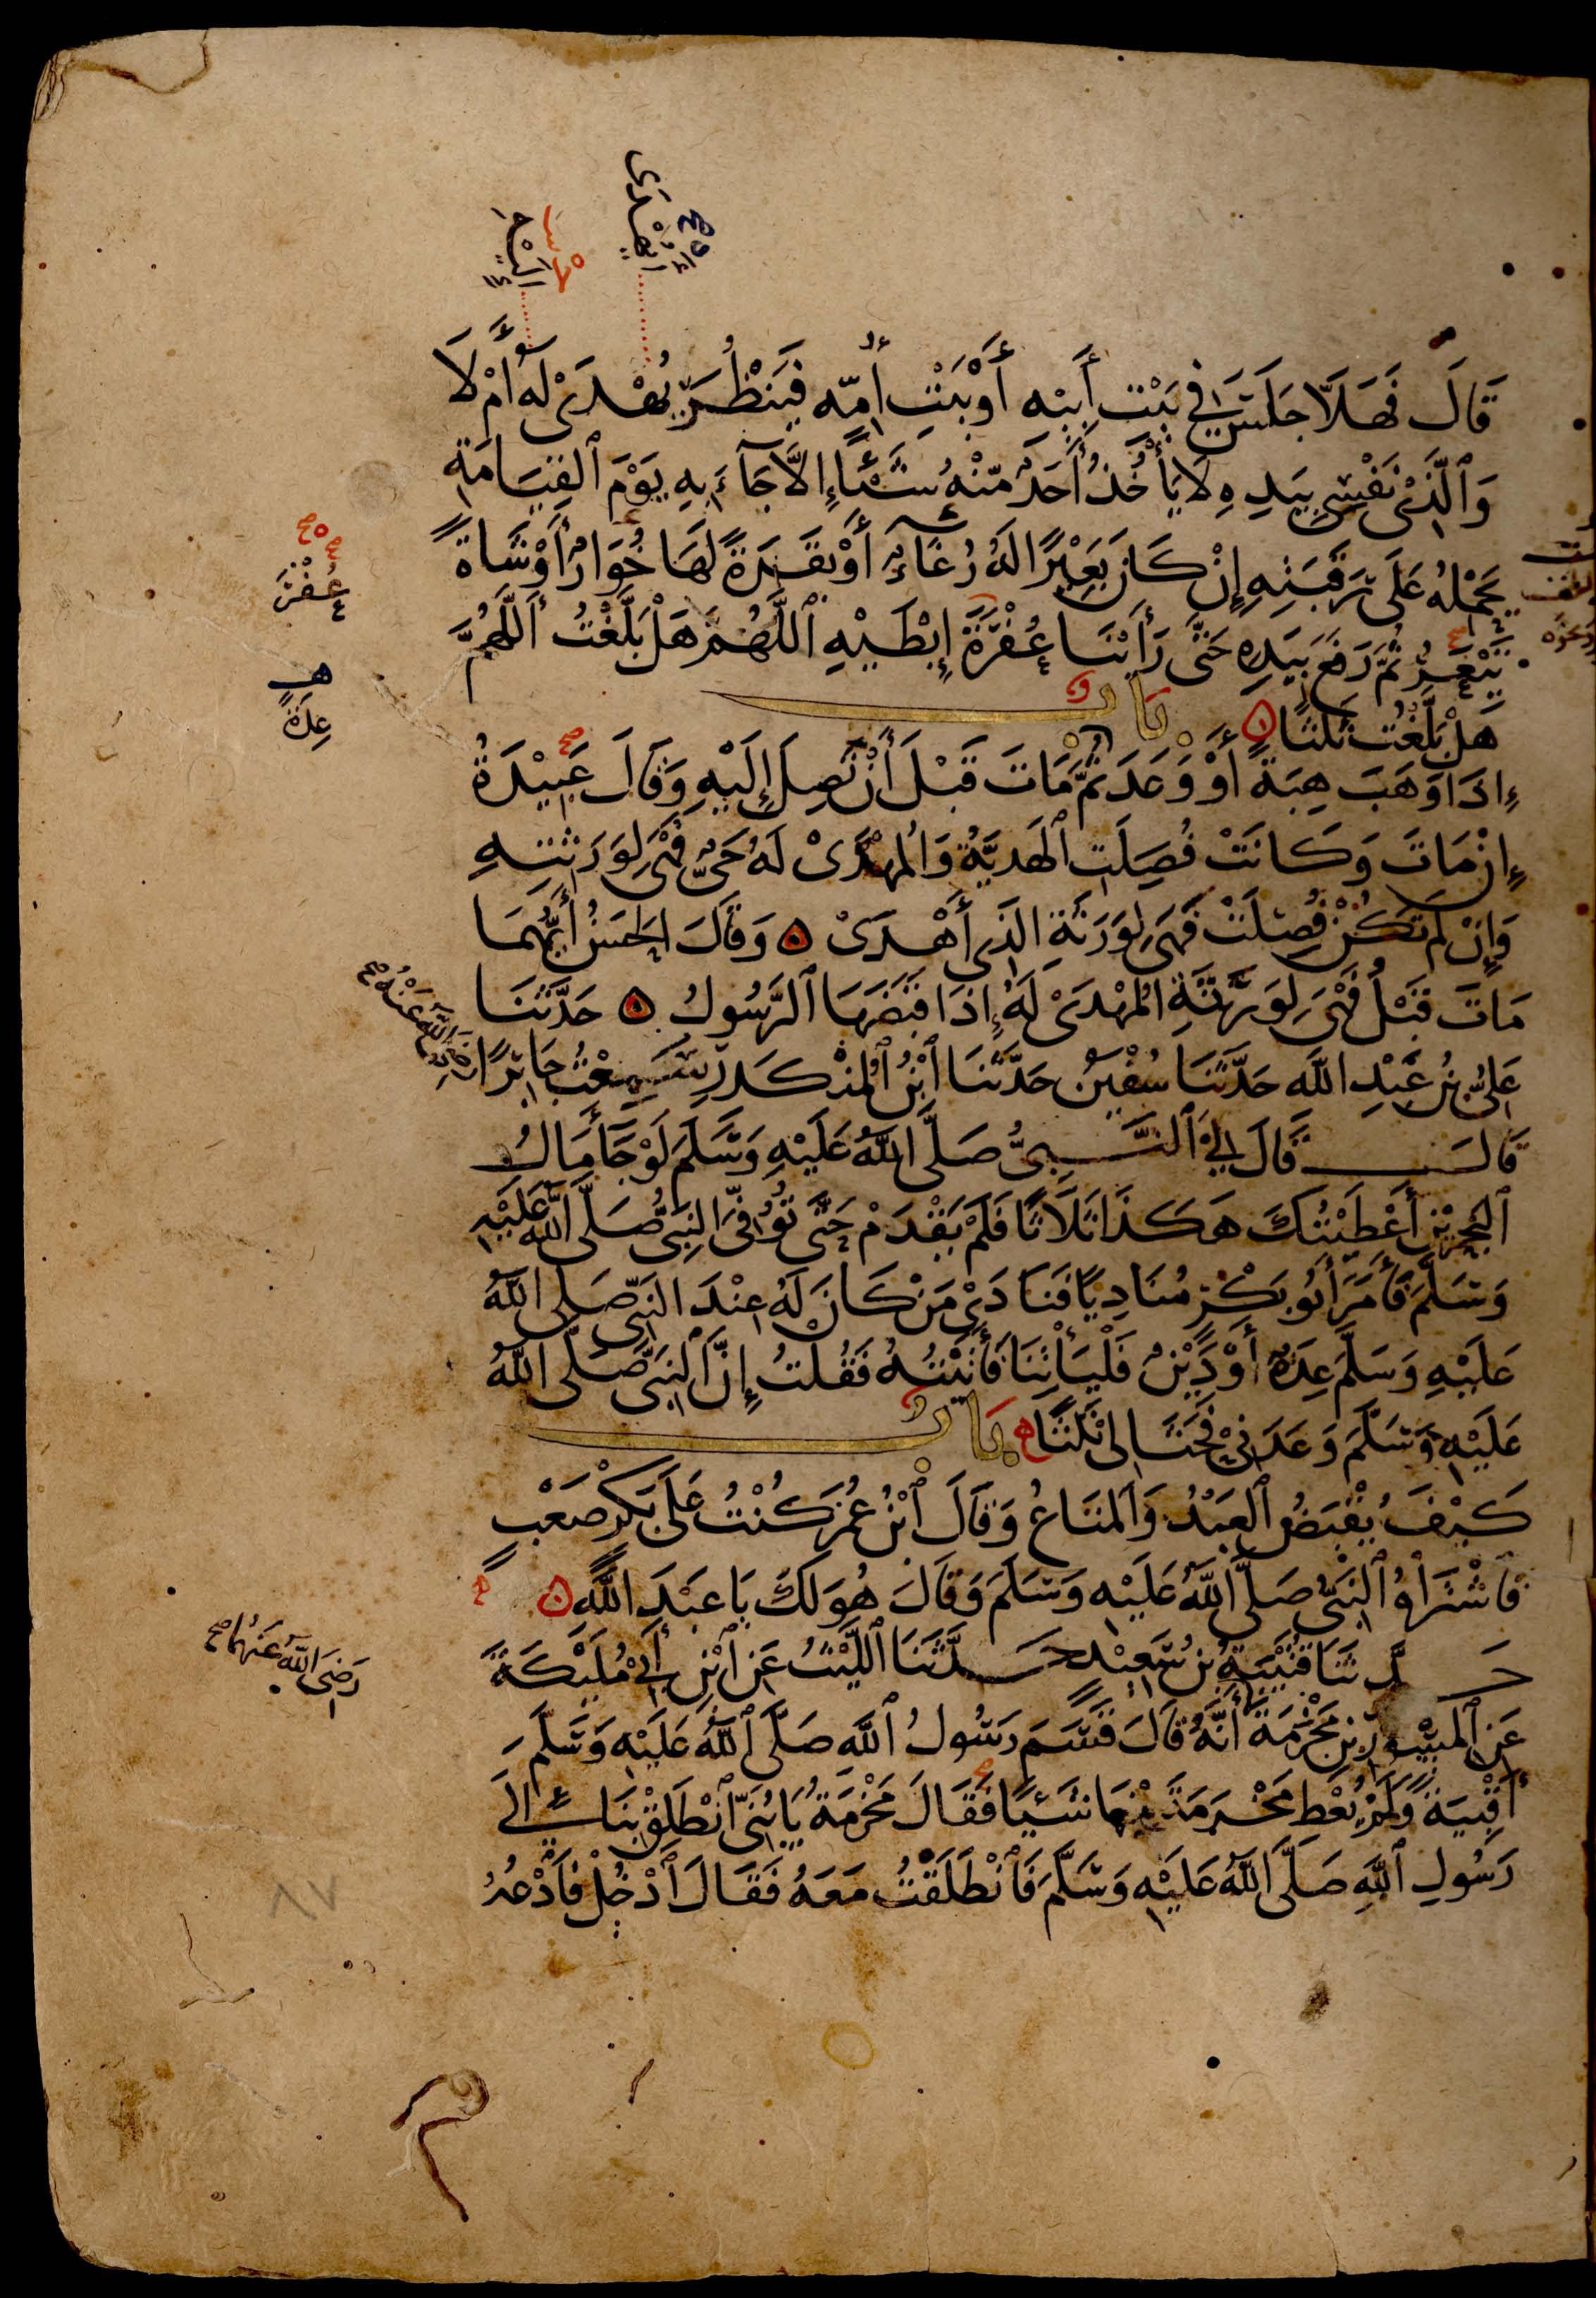 أيهدى
قَالَ فَهَلَّا جَلَسَ فِي بَيْتِ أَبِيْهِ أَوْ بَيْتِ أُمِّهِ فَيَنْظُرَ يُهْدَىْ لَهُ أَمْ لَا
وَٱلَّذِيْ نَفْسِيْ بِيَدِهِ لَا يَأْخُذُ أَحَدٌ مِّنْهُ شَيْئًا إِلَّا جَآءَ بِهِ يَوْمَ ٱلْقِيَامَةِ
يَحْمِلُهُ عَلَى رَقَبَتِهِ إِنْ كَانَ بَعِيْرًا لَهُ رُغَآءٌ أَوْ بَقَرَةً لَهَا خُوَارٌ أَوْ شَاةً
عُفْرَ
تَيْعَرُ ثُمَّ رَفَعَ بِيَدِهِ حَتَّى رَأَيْنَا عُفْرَةَ إِبْطَيْهِ ٱللَّهُمَّ هَلْ بَلَّغْتُ ٱللَّهُمَّ
هَلْ بَلَّغْتُ ثَلَثًا بَابٌ
هـ عِدَةً
إِذَا وَهَبَ هِبَةً أَوْ وَعَدَ ثُمَّ مَاتَ قَبْلَ أَنْ تَصِلَ إِلَيْهِ وَقَالَ عَبِيْدَةُ
إِنْ مَاتَ وَكَانَتْ فُصِلَتِ ٱلْهَدِيَّةُ وَالْمُهْدَىْ لَهُ حَيٌّ فَهْيَ لِوَرَثَتِهِ
وَإِنْ لَمْ تَكُنْ فُصِلَتْ فَهِيَ لِوَرَثَةِ الَّذِي أَهْدَىْ وَقَالَ الْحَسَنُ أَيُّهُمَا
مَاتَ قَبْلُ فَهْيَ لِوَرَثَةِ الْمُهْدَىْ لَهُ إِذَا قَبَضَهَا ٱلرَّسُولُ حَدَّثَنَا
عَلِيُّ بْنُ عَبْدِ اللَّهِ حَدَّثَنَا سُفْيٰنُ حَدَّثَنَا ٱبْنُ ٱلْمُنْكَدِرِ سَمِعْتُ جَابِرًا
رَضِيَ اللَّهُ عَنْهُ صح
قَالَ قَالَ لِيْ ٱلنَّبِيُّ صَلَّى اللَّهُ عَلَيْهِ وَسَلَّمَ لَوْ جَآءَ مَالُ
ٱلْبَحْرَيْنِ أَعْطَيْتُكَ هَكَذَا ثَلَاثًا فَلَمْ يَقْدَمْ حَتَّى تُوُفِّيَ النَّبِيُّ صَلَّى اللَّهُ عَلَيْهِ
وَسَلَّمَ فَأَمَرَ أَبُو بَكْرٍ مُنَادِيًا فَنَادَىْ مَنْ كَانَ لَهُ عِنْدَ النَّبِيِّ صَلَّى اللَّهُ
عَلَيْهِ وَسَلَّمَ عِدَةٌ أَوْ دَيْنٌ فَلْيَأْتِنَا فَأَتَيْتُهُ فَقُلْتُ إِنَّ النَّبِيَّ صَلَّى اللَّهُ
عَلَيْهِ وَسَلَّمَ وَعَدَنِيْ فَحَثَا لِي ثَلَثًا بَابٌ
كَيْفَ يُقْبَضُ ٱلْعَبْدُ وَٱلْمَتَاعُ وَقَالَ ٱبْنُ عُمَرَ كُنْتُ عَلَى بَكْرٍ صَعْبٍ
فَاشْتَرَاهُ ٱلنَّبِيُّ صَلَّى اللَّهُ عَلَيْهِ وَسَلَّمَ وَقَالَ هُوَ لَكَ يَا عَبْدَ اللَّهِ
حَدَّثَنَا قُتَيْبَةُ بْنُ سَعِيْدٍ حَدَّثَنَا اللَّيْثُ عَنِ ٱبْنِ أَبِيْ مُلَيْكَةَ
رَضِيَ اللَّهُ عَنْهُمَا صح
عَنِ ٱلْمِسْوَرِ بْنِ مَخْرَمَةَ أَنَّهُ قَالَ قَسَمَ رَسُولُ ٱللَّهِ صَلَّى ٱللَّهُ عَلَيْهِ وَسَلَّمَ
أَقْبِيَةً وَلَمْ يُعْطِ مَخْرَمَةَ مِنْهَا شَيْئًا فَقَالَ مَخْرَمَةُ يَا بُنَيِّ ٱنْطَلِقْ بِنَا إِلَى
رَسُولِ ٱللَّهِ صَلَّى اللَّهُ عَلَيْهِ وَسَلَّمَ فَٱنْطَلَقْتُ مَعَهُ فَقَالَ ٱدْخُلْ فَادْعُهُ
٨٧